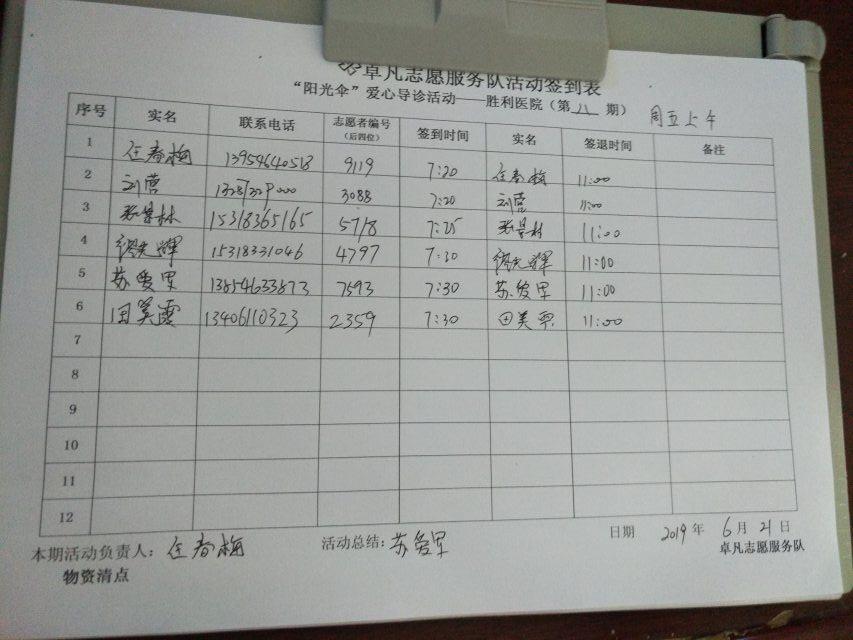 卓凡志愿服务队活动签到表
“阳光伞”爱心导诊活动——胜利医院（第 八 期） 周五上午
序号 实名 联系电话 志愿者编号（后四位） 签到时间 实名 签退时间 备注
1 任春梅 13954640518 9119 7:20 任春梅 11:00
2 刘营 3088 7:20 刘营 11:00
3 张景林 15318365165 5718 7:25 张景林 11:00
4 15318331046 4797 7:30 11:00
5 苏爱军 13854633873 7593 7:30 苏爱军 11:00
6 田美霞 13406110323 2359 7:30 田美霞 11:00
7
8
9
10
11
12
本期活动负责人：任春梅 活动总结：苏爱军 日期 2019 年 6 月 21 日
物资清点 卓凡志愿服务队